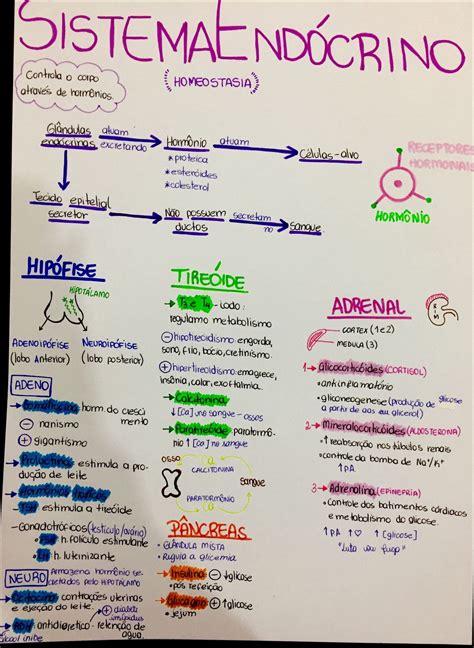 SISTEMA ENDÓCRINO
(HOMEOSTASIA)
Controla o corpo
através de hormônios.
Glândulas
endócrinas
atuam
excretando
Hormônio
* proteica
* esteróides
* colesterol
atuam
Células-alvo
RECEPTORES
HORMONAIS
HORMÔNIO
Tecido epitelial
secretor
Não possuem
ductos
secretam
no
sangue
HIPÓFISE
HIPOTÁLAMO
ADENOIPÓFISE
(lobo Anterior)
NEUROIPÓFISE
(lobo posterior)
ADENO
Somatotrofina horm do cresci
mento
⊖ nanismo
⊕ gigantismo
Prolactina estimula a pro-
dução de leite
Hormônios tróficos
TSH estimula a tireóide
-Gonadotróficos (testículo/ovário)
FSH h. folículo estimulante
LH h. luteinizante
NEURO
Armazena hormônio se-
cretados pelo HIPOTÁLAMO
Ocitocina contrações uterinas
e ejeção do leite.
⊕ diabete
insípidus
ADH antidiurético - retenção de
água.
álcool inibe
TIREÓIDE
T3 e T4 - iodo:
regulam o metabolismo
⊖ hipotireoidismo: engorda,
sono, frio, bócio, cretinismo.
⊕ hipertireoidismo: emagrece,
insônia, calor, exoftalmia.
Calcitonina
↓ [Ca] no sangue - ossos
Paratireóide paratormô-
nio ↑ [Ca] no sangue
OSSO
CALCITONINA
sangue
PARATORMÔNIO
PÂNCREAS
* GLÂNDULA MISTA
* Regula a glicemia
Insulina ⊖ ↓glicose
* pós refeição
Glucagon ⊕ ↑glicose
* jejum
ADRENAL
RIM
CORTEX (1 e 2)
MEDULA (3)
1→ Glicocorticóides (CORTISOL)
* antiinflamatório
* gliconeogenese (produção de glicose
a partir de aa ou glicerol)
2→ Mineralocorticóides (ALDOSTERONA)
* ↑ reabsorção nos túbulos renais
* controla da bomba de Na⁺/K⁺
↑PA
3→ Adrenalina (EPINEFRIA)
* Controle dos batimentos cárdiacos
e metabolismo do glicose.
↑PA ↑♡ ↑[glicose]
"Luta ou fuga"